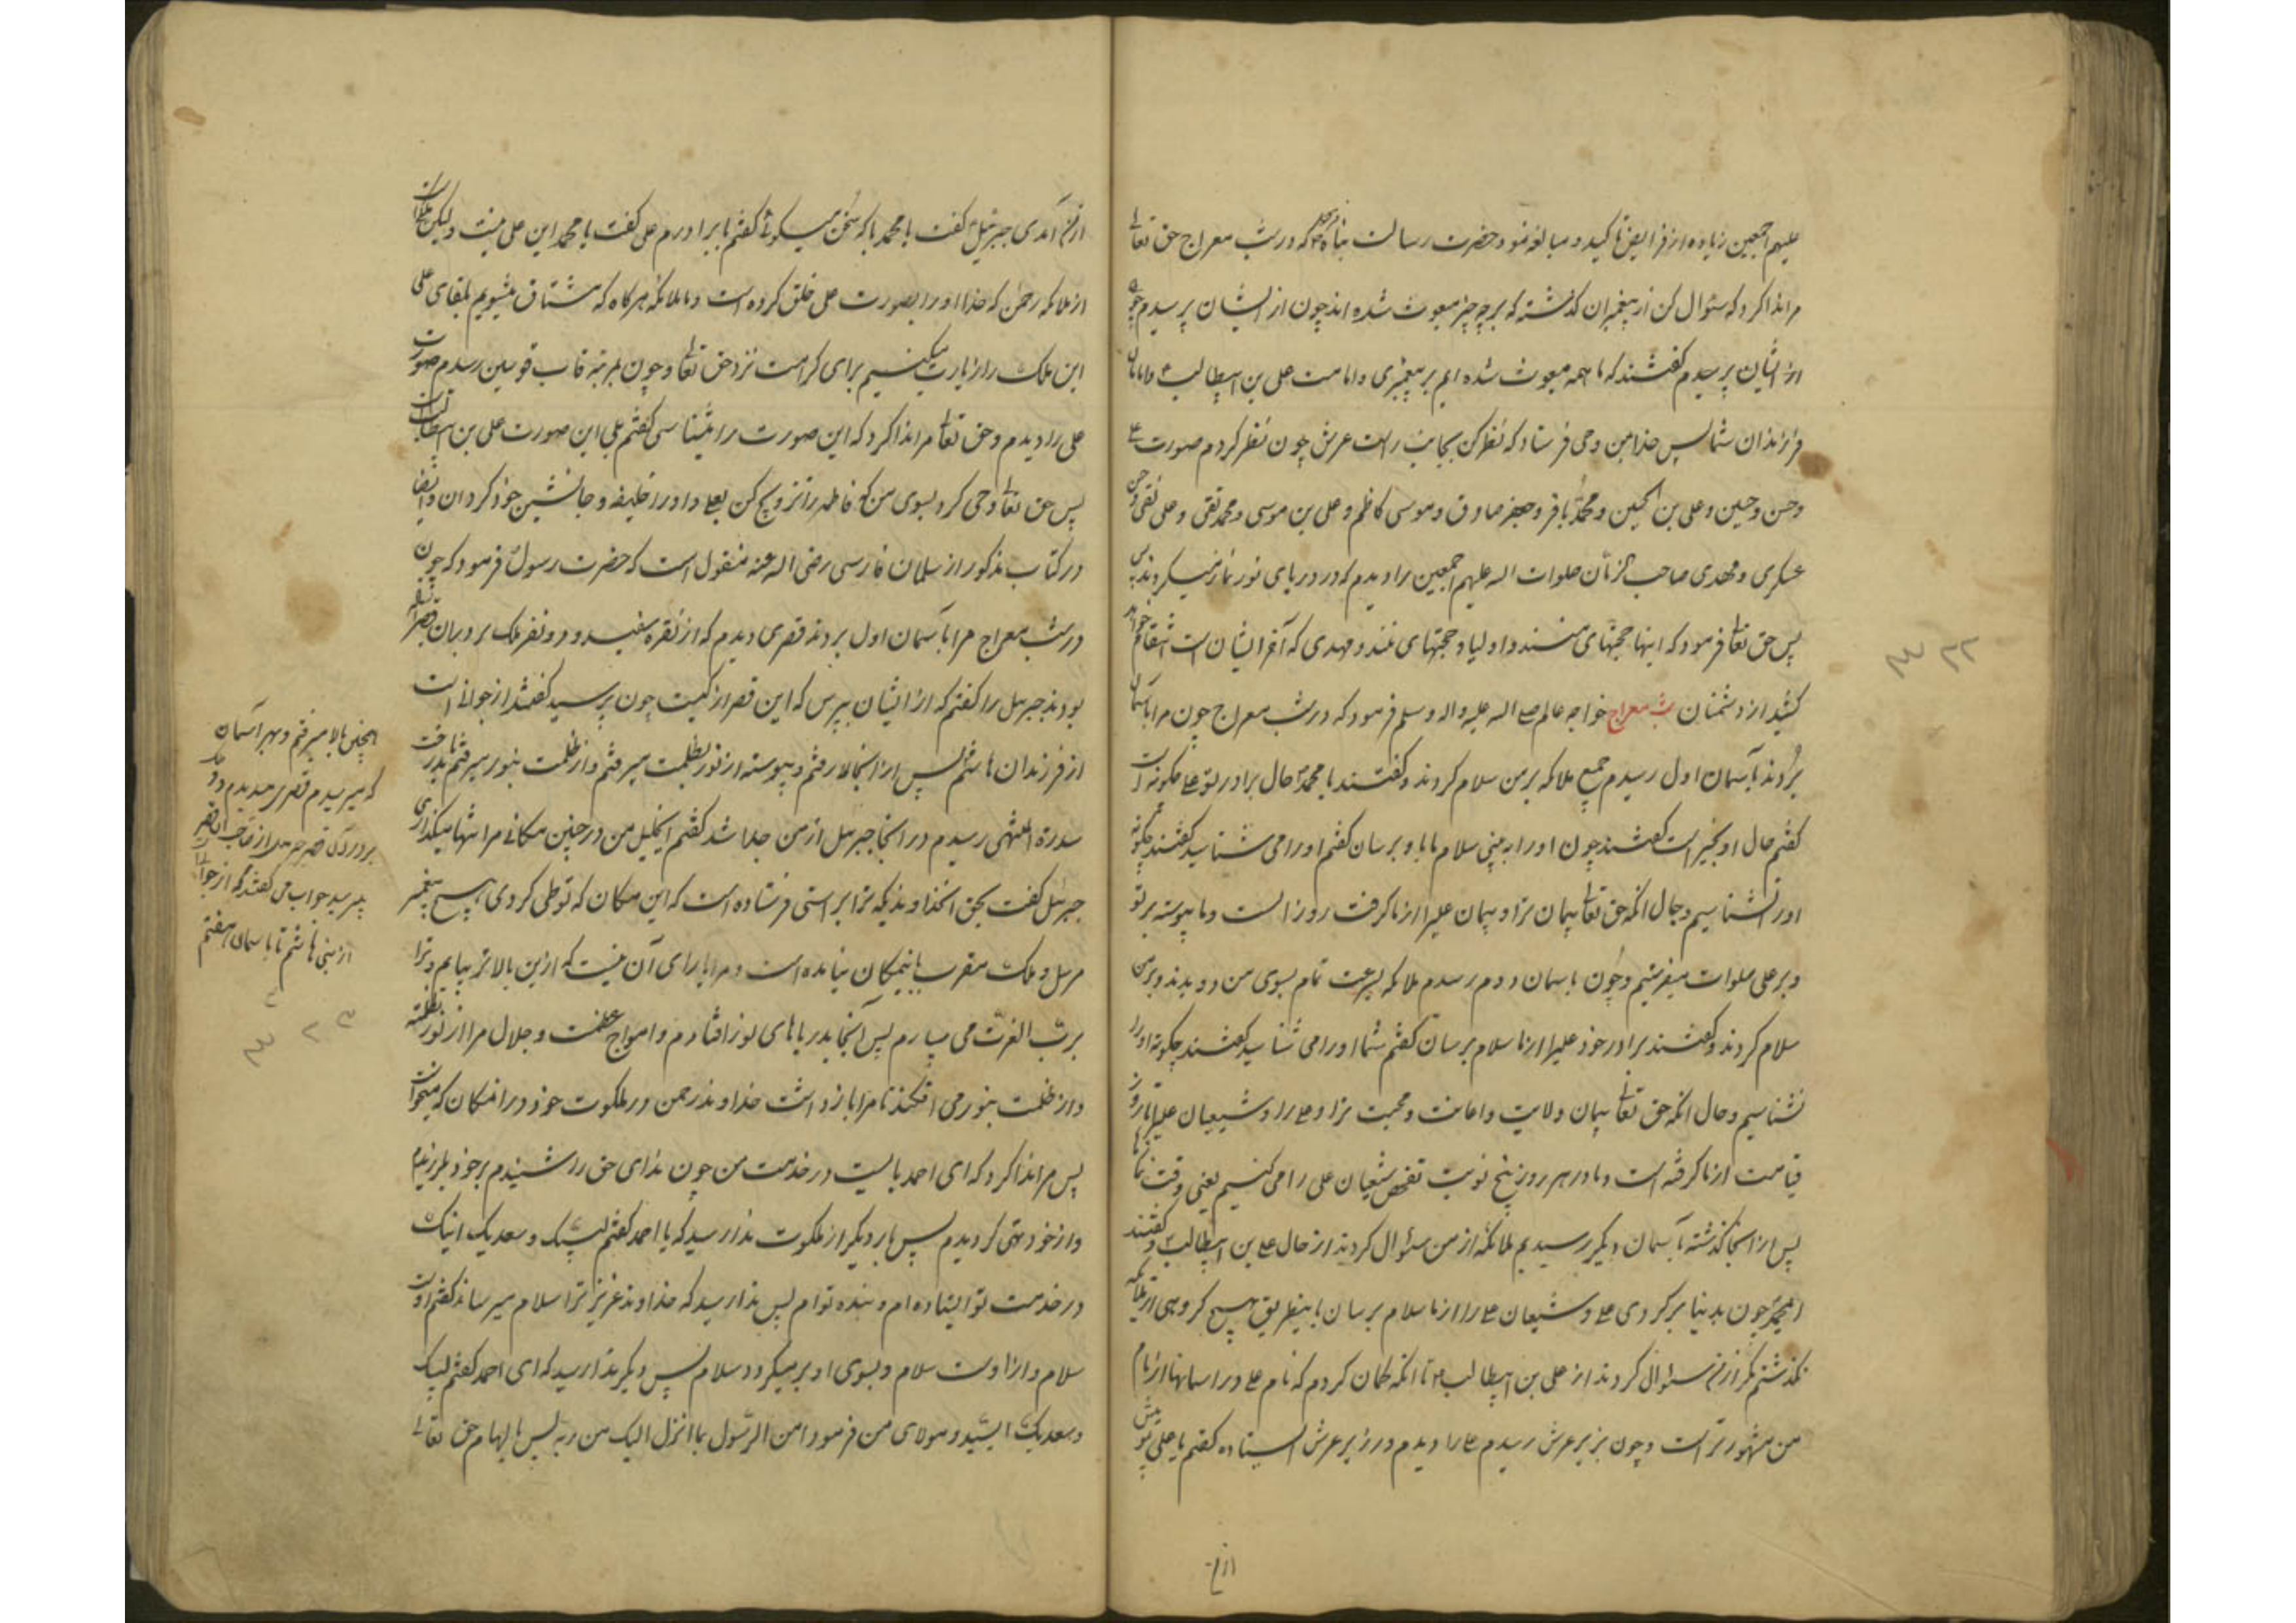 علیهم اجمعین زیاده از فرایض تاکید و مبالغه نمود و حضرت رسالت پناه فرمود که در شب معراج حق تعالی
مرا ندا کرد که سئوال کن از پیغمبران گذشته که بر چه چیز مبعوث شده اند چون از ایشان پرسیدم
از ایشان پرسیدم گفتند که ما همه مبعوث شده ایم بر پیغمبری و امامت علی بن ابیطالب و امامان
فرزندان شما پس خدا بمن وحی فرستاد که نظر کن بجانب راست عرش چون نظر کردم صورت علی
و حسن و حسین و علی بن الحسین و محمد باقر و جعفر صادق و موسی کاظم و علی بن موسی و محمد تقی و علی نقی و حسن
عسکری و مهدی صاحب الزمان صلوات اله علیهم اجمعین را دیدم که در دریای نور نماز میکردند
پس حق تعالی فرمود که اینها حجتهای منند و اولیا و حجتهای منند و مهدی که آخر ایشان است انتقام خواهد
کشید از دشمنان شب معراج خواجه عالم صلی اله علیه واله وسلم فرمود که در شب معراج چون مرا بآسمان
بردند بآسمان اول رسیدم جمیع ملائکه بر من سلام کردند و گفتند یا محمد حال برادر تو علی چگونه است
گفتم حال او بخیر است گفتند چون او را به بینی سلام ما باو برسان گفتم او را می شناسید گفتند چگونه
او را نشناسیم و حال انکه حق تعالی پیمان ترا و پیمان علی را از ما گرفت روز الست و ما پیوسته بر تو
و بر علی صلوات میفرستیم و چون باسمان دوم رسیدم ملائکه بسرعت تمام بسوی من دویدند و بر من
سلام کردند و گفتند برادر خود علی را از ما سلام برسان گفتم شما او را می شناسید گفتند چگونه او را
نشناسیم و حال انکه حق تعالی پیمان ولایت و اعانت و محبت ترا و علی را و شیعیان علی را تا روز
قیامت از ما گرفته است و ما در هر روز پنج نوبت تفحص شیعیان علی را می کنیم یعنی وقت نمازها
پس از انجا گذشته بآسمان دیگر رسیدیم ملائکه از من سئوال کردند از حال علی بن ابیطالب و گفتند
ایمحمد چون بدنیا برگردی علی و شیعیان علی را از ما سلام برسان باینطریق بهیچ گروهی از ملائکه
نگذشتم مگر از من سئوال کردند از علی بن ابیطالب تا انکه گمان کردم که نام علی در اسمانها از نام
من مشهورتر است و چون بزیر عرش رسیدم علی را دیدم در زیر عرش ایستاده گفتم یا علی تو پیش
از من
از من آمدی جبرئیل گفت یا محمد با که سخن میگوئی گفتم با برادرم علی گفت یا محمد این علی نیست ولیکن ملکی است
از ملائکه رحمن که خدا او را بصورت علی خلق کرده است و ما ملائکه هرگاه که مشتاق میشویم بلقای علی
این ملک را زیارت میکنیم برای کرامت نزد حق تعالی و چون بمرتبه قاب قوسین رسیدم صورت
علی را دیدم و حق تعالی مرا ندا کرد که این صورت را میشناسی گفتم بلی این صورت علی بن ابیطالب است
پس حق تعالی وحی کرد بسوی من که فاطمه را تزویج کن بعلی و او را خلیفه و جانشین خود گردان و ایضا
در کتاب مذکور از سلمان فارسی رضی اله عنه منقول است که حضرت رسول فرمود که چون
در شب معراج مرا بآسمان اول بردند قصری دیدم که از نقره سفید و دو نفر ملک بر دربان قصر
بودند جبرئیل را گفتم که از ایشان بپرس که این قصر از کیست چون پرسید گفتند از جوانی است
از فرزندان هاشم پس از انجا بالا رفتم و پیوسته از نور بظلمت میرفتم و از ظلمت بنور میرفتم بدرخت
سدرة المنتهی رسیدم در انجا جبرئیل از من جدا شد گفتم ایخلیل من در چنین مکانی مرا تنها میگذاری
جبرئیل گفت بحق انخداوندیکه ترا براستی فرستاده است که این مکان که تو طی کردی هیچ پیغمبر
مرسل و ملک مقرب باینمکان نیامده است و مرا یارای آن نیست که ازین بالاتر بیایم و ترا
برب العزت می سپارم پس آنجا بدریاهای نور افتادم و امواج عظمت و جلال مرا از نور بظلمت
و از ظلمت بنور می افکند تا مرا بازداشت خداوند رحمن در ملکوت خود در انمکان که میخواست
پس مرا ندا کرد که ای احمد بایست در خدمت من چون ندای حق را شنیدم بر خود بلرزیدم
و از خود تهی گردیدم پس بار دیگر از ملکوت ندا رسید که یا احمد گفتم لبیک و سعدیک اینک
در خدمت تو ایستاده ام و بنده توام پس ندا رسید که خداوند عزیز ترا سلام میرساند گفتم اوست
سلام و از اوست سلام و بسوی او برمیگردد سلام پس دیگر ندا رسید که ای احمد گفتم لبیک
و سعدیک ای سید و مولای من فرمود امن الرسول بما انزل الیک من ربه پس بالهام حق تعالی
همچنین بالا میرفتم و بهر آسمان
که میرسیدم قصری میدیدم و دو ملک
بر در آن قصر جبرئیل از صاحب ان قصر
میپرسید جواب می گفتند که از جوانی
از بنی هاشم تا باسمان هفتم